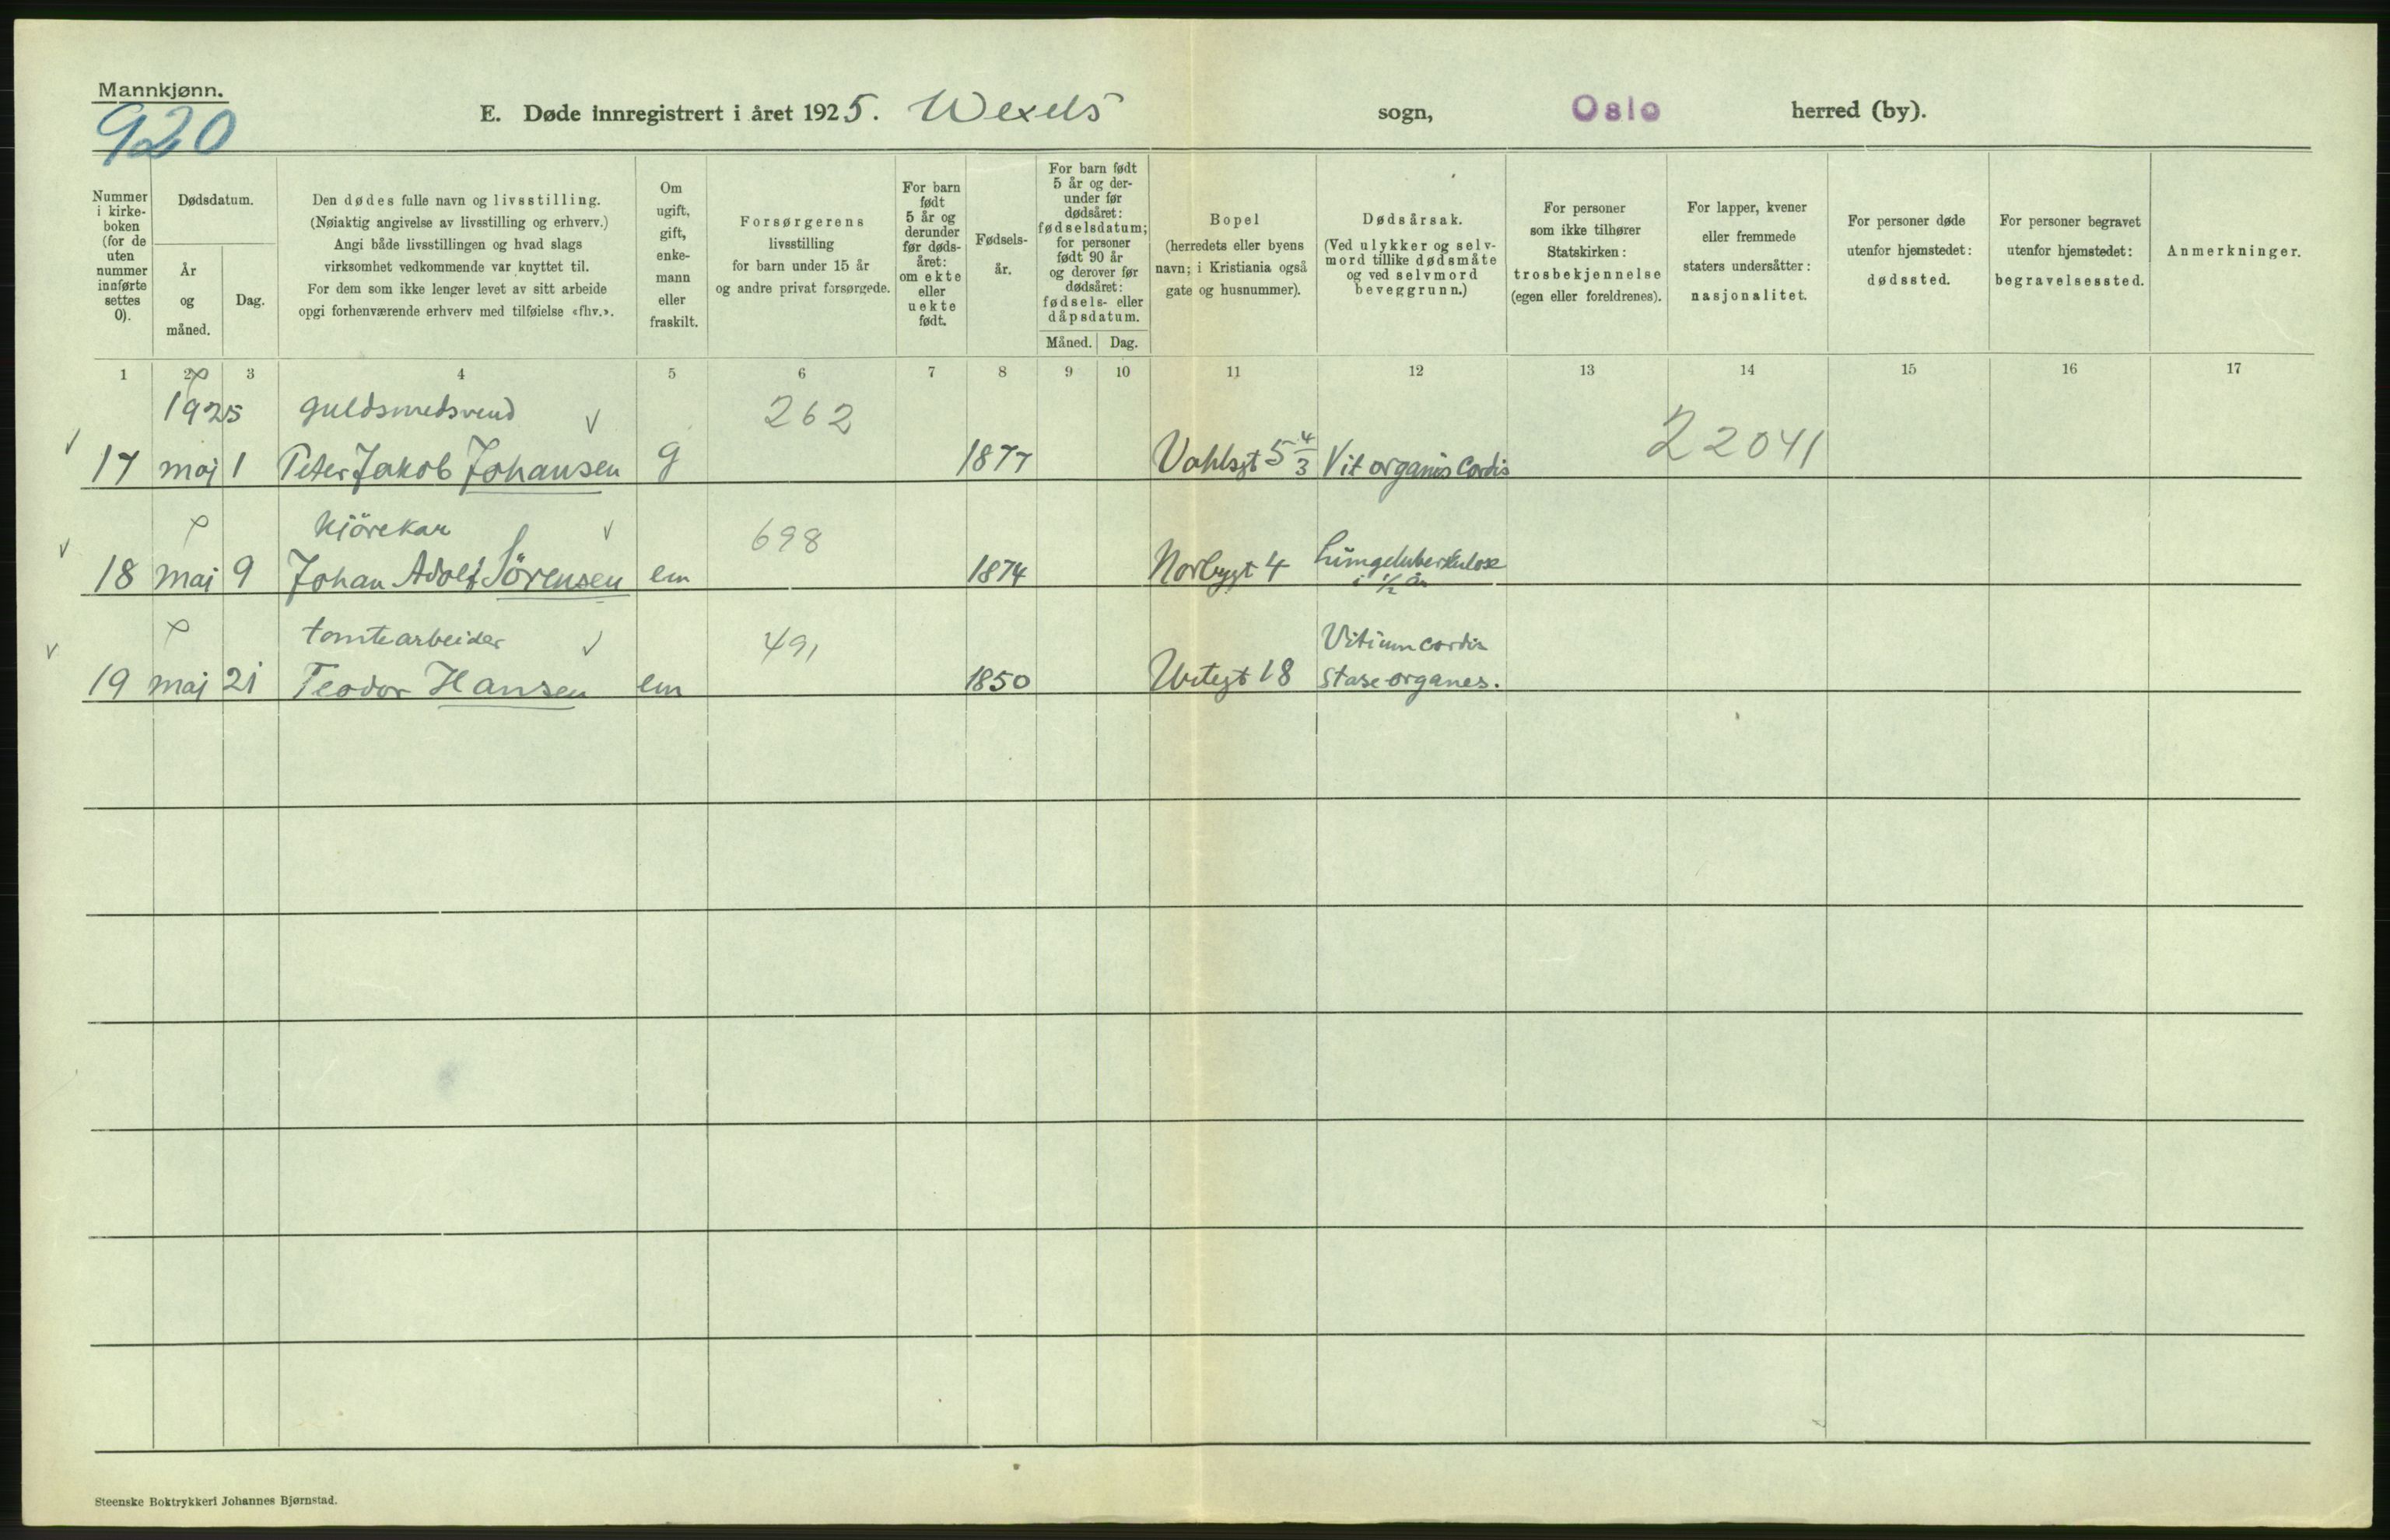 Mannkjønn.
920
E. Døde innregistrert i året 1925. Wexels sogn, Oslo herred (by).
Nummer i kirke- boken (for de uten nummer innførte settes 0).
Dødsdatum.
År og måned.
Dag.
Den dødes fulle navn og livsstilling.
(Nøiaktig angivelse av livsstilling og erhverv.)
Angi både livsstillingen og hvad slags
virksomhet vedkommende var knyttet til.
For dem som ikke lenger levet av sitt arbeide
opgi forhenværende erhverv med tilføielse «fhv.».
Om ugift, gift, enke- mann eller fraskilt.
Forsørgerens
livsstilling
for barn under 15 år
og andre privat forsørgede.
For barn født 5 år og derunder før døds- året: om ekte eller uekte født.
Fødsels- år.
For barn født 5 år og der- under før dødsåret: fødselsdatum; for personer født 90 år og derover før dødsåret: fødsels- eller dåpsdatum.
Måned. Dag.
Bopel
(herredets eller byens
navn; i Kristiania også
gate og husnummer).
Dødsårsak.
(Ved ulykker og selv-
mord tillike dødsmåte
og ved selvmord
beveggrunn.)
For personer
som ikke tilhører
Statskirken:
trosbekjennelse
(egen eller foreldrenes).
For lapper, kvener
eller fremmede
staters undersåtter:
nasjonalitet.
For personer døde
utenfor hjemstedet:
dødssted.
For personer begravet
utenfor hjemstedet:
begravelsessted.
Anmerkninger.
1 2 3 4 5 6 7 8 9 10 11 12 13 14 15 16 17
1925 guldsmedsvend 262 22041
17 maj 1 Peter Jakob Johansen g 1877 Vahlsgt 5 4/3 Vit organis Cordis
kjörekar 698
18 maj 9 Johan Adolf Sörensen em 1874 Norbygt 4 Lungetuberkulose
i 1/2 år
tomtearbeider 491 Vitium cordis
19 maj 21 Teodor Hansen em 1850 Urtegt 18 Stase organes.
Steenske Boktrykkeri Johannes Bjørnstad.